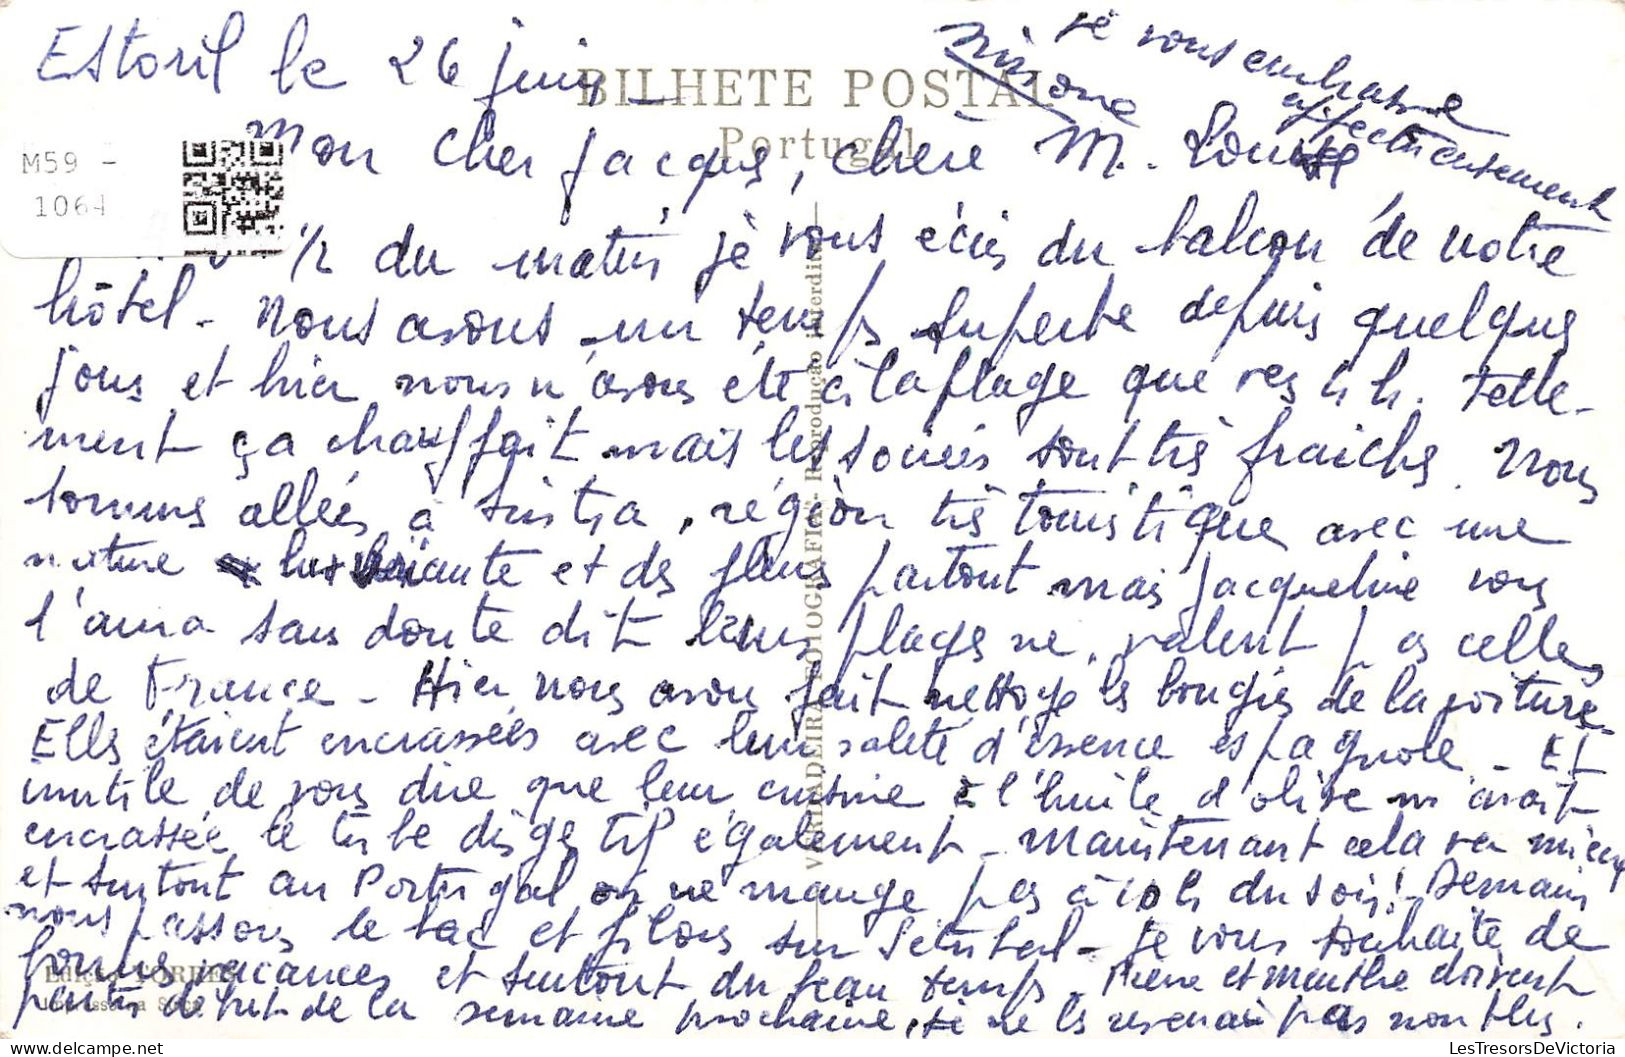 Estoril le 26 juin
BILHETE POSTAL
Portugal
je vous embrasse
affectueusement
Simone
M59 -
1064
Mon cher Jacques, chère M. Louise
1/2 du matin je vous écris du balcon de notre
hôtel - Nous avons un temps superbe depuis quelques
jours et hier nous n'avons été à la plage que vers 4 h. telle-
ment ça chauffait mais les soirées sont très fraiches. Nous
sommes allées à Sintra, région très touristique avec une
nature luxuriante et des fleurs partout mais Jacqueline vous
l'aura sans doute dit leurs plages ne valent pas celles
de France - Hier nous avons fait nettoyer les bougies de la voiture.
Elles étaient encrassées avec leur saleté d'essence espagnole - Et
inutile de vous dire que leur cuisine à l'huile d'olive m'avait
encrassée le tube digestif également - Maintenant cela va mieux
et surtout au Portugal on ne mange pas à 10 h du soir! Demain
nous passons le bac et filons sur Setubal - Je vous souhaite de
bonnes vacances et surtout du beau temps - et Marthe doivent
partir début de la semaine prochaine, je ne les reverrai pas non plus.
VERDADEIRA FOTOGRAFIA - Reprodução interdita
Edição TORRES
Impresso na Suiça
LesTresorsDeVictoria